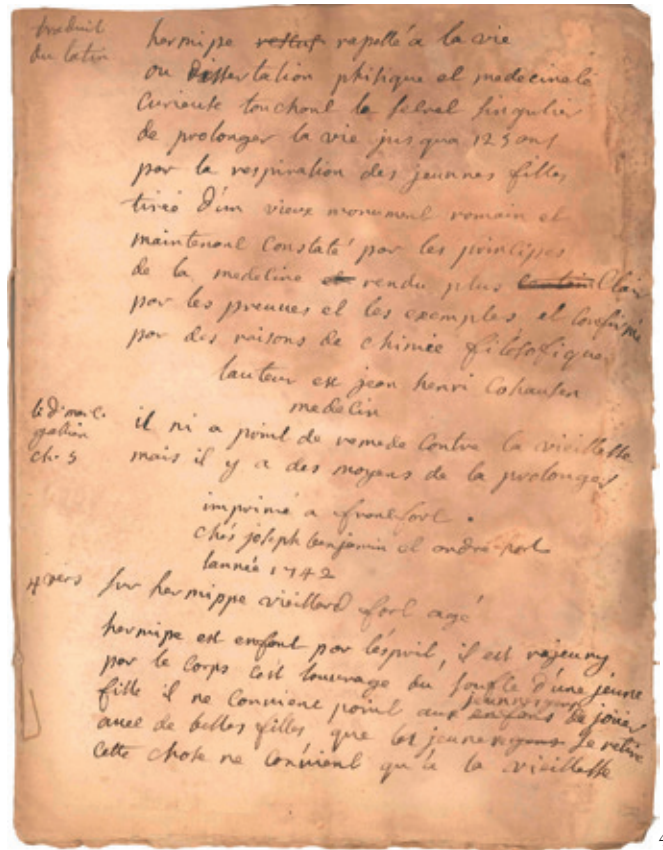 traduit
du latin
hermipe rapellé a la vie
ou dissertation phisique et medecinale
Curieuse touchant le secret singulier
de prolonger la vie jusqua 125 ans
par la respiration des jeunnes filles
tirée d'un vieux monument romain et
maintenant Constaté par les principes
de la medecine et rendu plus Clair
par les preuues et les exemples et Confirmé
par des raisons de chimie filosofique
lauteur est jean henri Cohausen
medecin
ch. 5
il ni a point de remede Contre la vieillesse
mais il y a des moyens de la prolonger
imprimé a francfort .
chés joseph benjamin et andré
lannée 1742
4 vers
sur hermippe vieillard fort agé
hermipe est enfant par lésprit, il est rajeuny
par le corps cest louurage du soufle d'une jeune
fille il ne Conuient point aux enfans de joüer
jeunnes gens
auec de belles filles que les jeunes gens se retire
cette chose ne Conuient qu'a la vieillesse
4